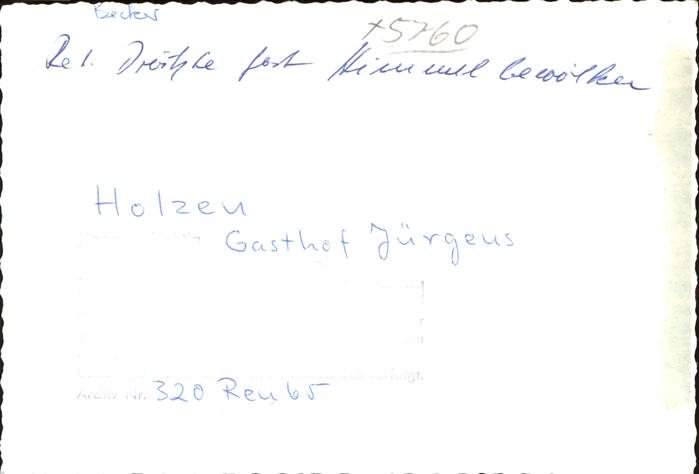 Becker
+5760
Ret. Drähte fort Himmel bewölken
Holzen
Gasthof Jürgens
verfolgt.
Archiv Nr. 320 Reu 65